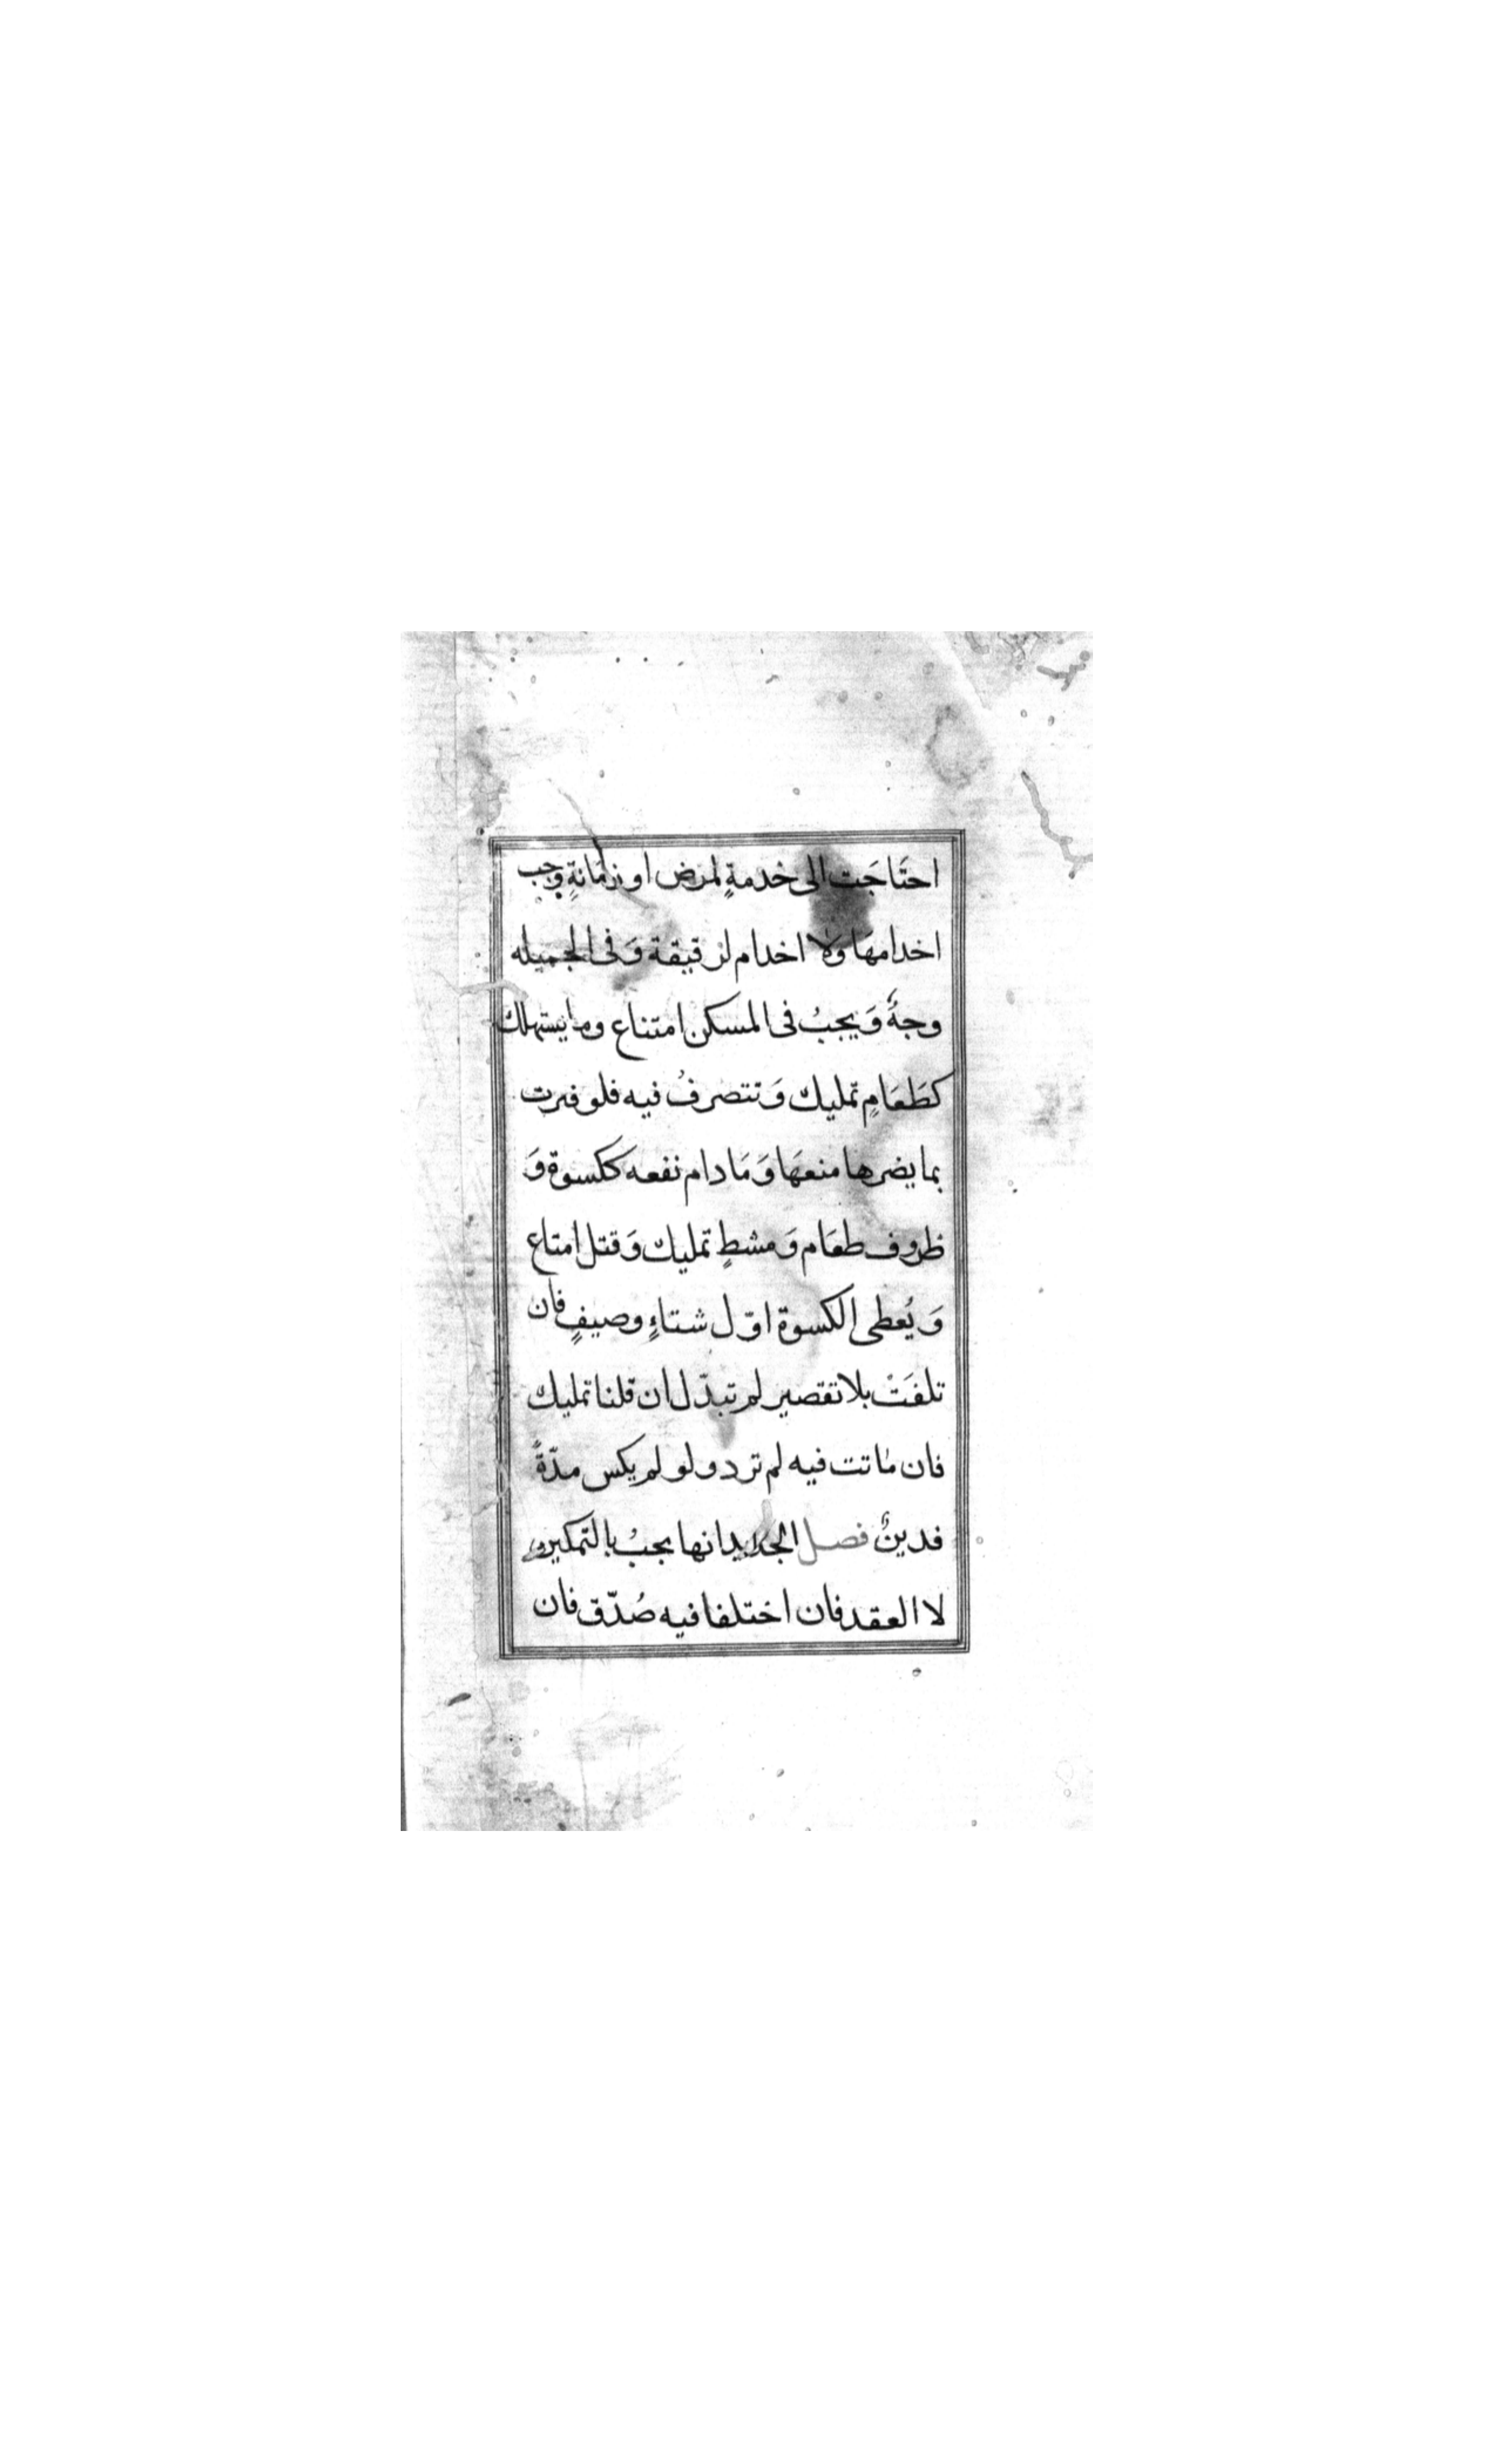 احتَاجَت الى خدمةٍ لمرض او زمَانةٍ وجب
اخدامهَا وَلا اخدام لرقيقة وَفى الجميله
وجهٌ وَيجبُ فى المسكن امتناع وما يستهلك
كطَعَامٍ تمليك وَتتصرفُ فيه فلو قترت
بما يضرها منعهَا وَمَا دام نفعه ككسوة وَ
ظروف طعَام وَمشطٍ تمليك وَقتل امتاع
وَيُعطى الكسوة اوّل شتاءٍ وصيفٍ فان
تلفَتْ بلا تقصير لم تبدّل ان قلنا تمليك
فان ماتت فيه لم ترد ولو لم يكس مدّةً
فدينٌ فصل الجديد انها يجبُ بالتّمكين
لا العقد فان اختلفا فيه صُدّق فان